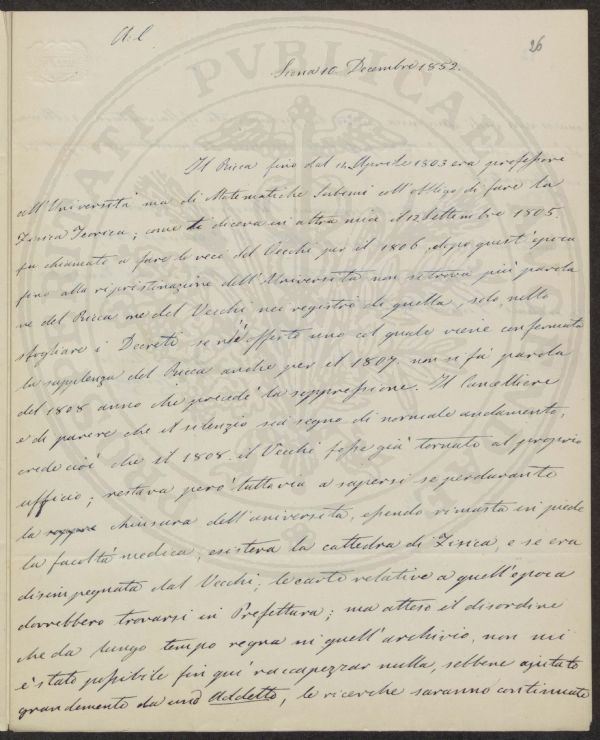 C. C.
26
Siena 10. Decembre 1852.
Il Ricca fino dal 12. Aprile 1803 era professore
all'Università ma di Matematiche Sublimi coll'obbligo di fare la
Fisica Teorica; come ti diceva in altra mia il 12 Settembre 1805.
fu chiamato a fare le veci del Vecchi per il 1806, dopo quest'epoca
fino alla ripristinazione dell'Università non si trova più parola
ne del Ricca ne del Vecchi nei registri di quella, solo nello
sfogliare i Decreti se n'è offerto uno col quale viene confermata
la supplenza del Ricca anche per il 1807. non si fà parola
del 1808 anno che precedé la soppressione. Il Cancelliere
è di parere che il silenzio sia segno di normale andamento;
crede cioè che il 1808. il Vecchi fosse già tornato al proprio
ufficio; restava però tuttavia a sapersi se perdurante
la chiusura dell'università, essendo rimasta in piede
la facoltà medica, esisteva la cattedra di Fisica, e se era
disimpegnata dal Vecchi; le carte relative a quell'epoca
dovrebbero trovarsi in Prefettura; ma atteso il disordine
che da lungo tempo regna in quell'archivio, non mi
è stato possibile fin qui raccapezzar nulla, sebbene ajutato
grandemente da uno Addetto, le ricerche saranno continuate